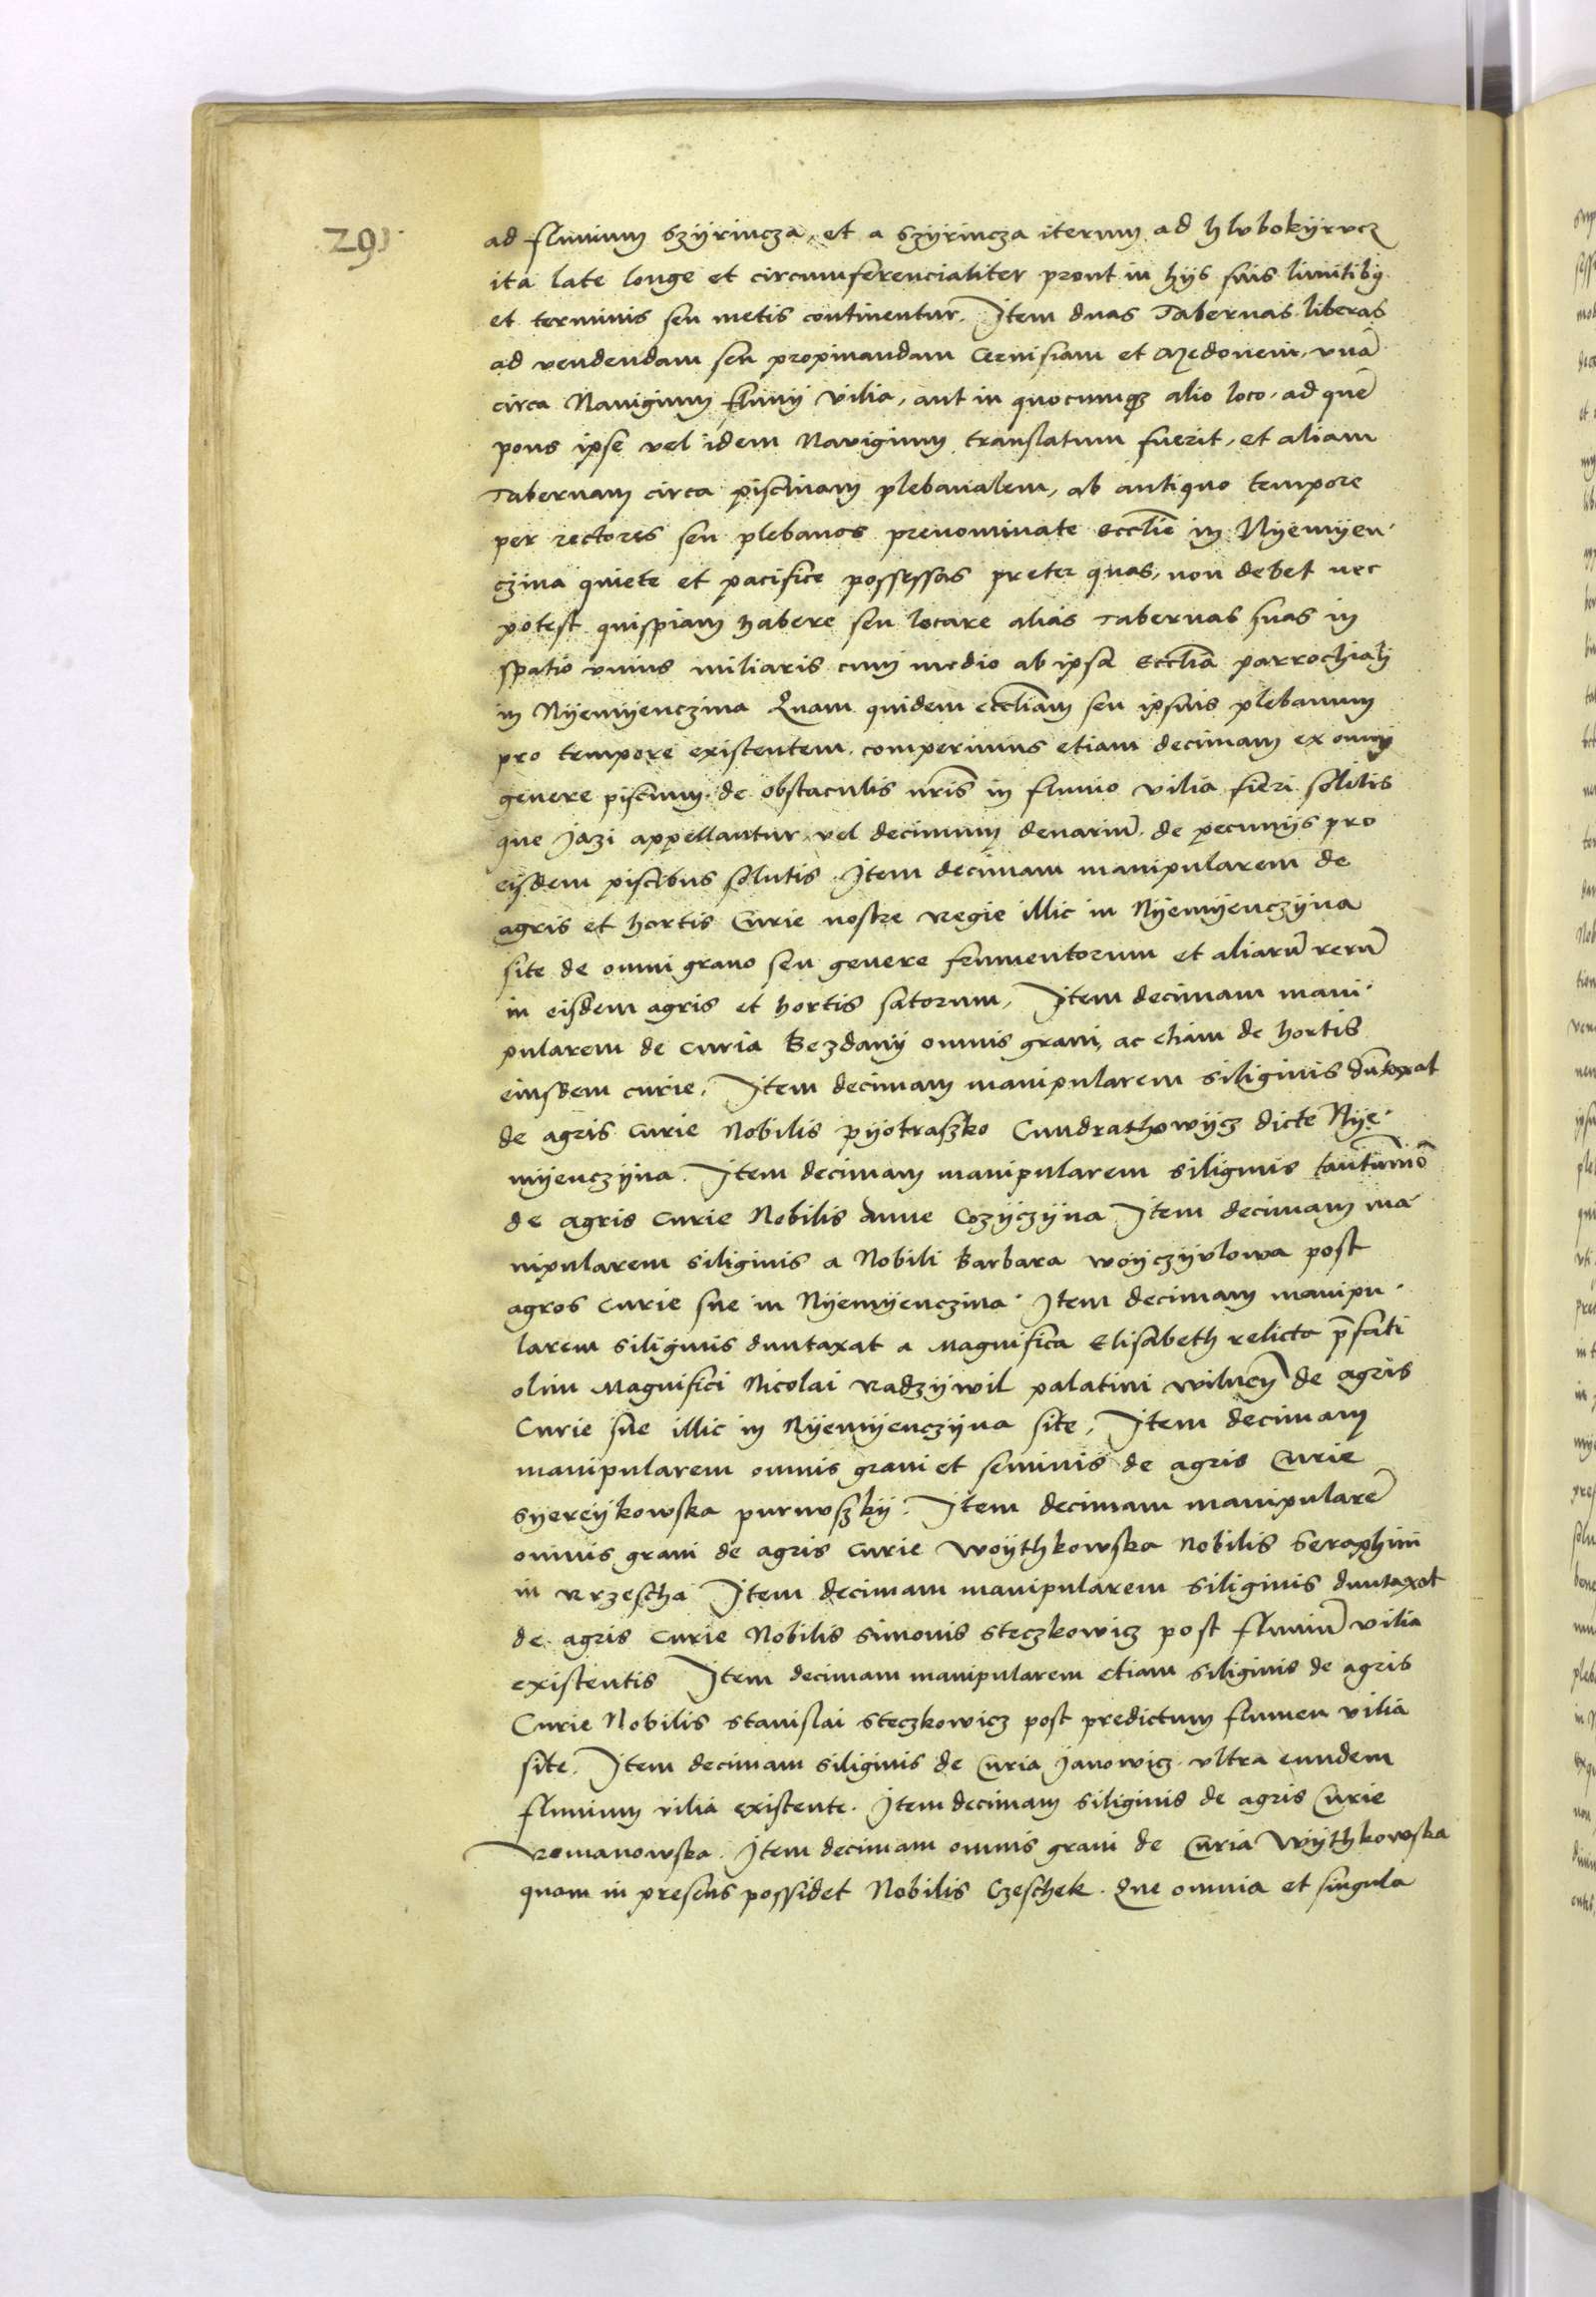 291.
ad fluvium Szyrincza, et a Szyrincza iterum ad hlvbokyrvcz
ita late longe et circumferencialiter prout in hys suis limitibꝫ
et terminis seu metis continentur. Item duas Tabernas liberas
ad vendendam seu propinandam Cervisiam et Medonem, vnā
circa Navigium fluvij Vilia, aut in quocumqꝫ alio loco, ad quē
pons ipse vel idem Navigium translatum fuerit, et aliam
Tabernam circa piscinam plebanalem, ab antiquo tempore
per rectores seu plebanos prenominate ecclīe in Nyemyen-
czina quiete et pacifice possessas preter quas, non debet nec
potest quispiam habere seu locare alias Tabernas suas in
spatio vnius miliaris cum medio ab ipsa ecclīa parrochiali
in Nyemyenczina Quam quidem ecclīam seu ipsius plebanum
pro tempore existentem, comperimus etiam decimam ex omni
genere piscium de obstaculis nrīs in fluvio vilia fieri solitis
que Jazi appellantur, vel decimum denariū de pecunijs pro
eisdem piscibus solutis. Item decimam manipularem de
agris et hortis Curie nostre Regie illic in Nyemyenczyna
site de omni grano seu genere frumentorum et aliarū rerū
in eisdem agris et hortis satorum, Item decimam mani-
pularem de curia Bezdany omnis grani, ac etiam de hortis
eiusdem curie, Item decimam manipularem siliginis dūtaxat
de agris Curie Nobilis pyotraszko Cundrathowycz dicte Nye-
myenczyna. Item decimam manipularem siliginis tantūmō
de agris Curie Nobilis Anne Cozyczyna Item decimam ma-
nipularem siliginis a Nobili Barbara woyczyvlowa post
agros Curie sue in Nyemyenczina. Item decimam manipu-
larem siliginis duntaxat a Magnifica Elisabeth relicta p̄fati
olim Magnifici Nicolai Radzywil palatini wilneñ de agris
Curie sue illic in Nyemyenczyna site, Item decimam
manipularem omnis grani et seminis de agris Curie
Syereykowska purwszky. Item decimam manipularē
omnis grani de agris Curie woythkowska Nobilis Seraphim
in Rzescha Item decimam manipularem siliginis duntaxat
de agris Curie Nobilis Simonis Steczkowicz post fluviū vilia
existentis Item decimam manipularem etiam siliginis de agris
Curie Nobilis Stanislai Steczkowicz post predictum flumen vilia
site. Item decimam siliginis de Curia Janowicz vltra eundem
fluvium vilia existente. Item decimam siliginis de agris Curie
Romanowska. Item decimam omnis grani de Curia Wythkowska
quam in presens possidet Nobilis Czeschek. Que omnia et singula